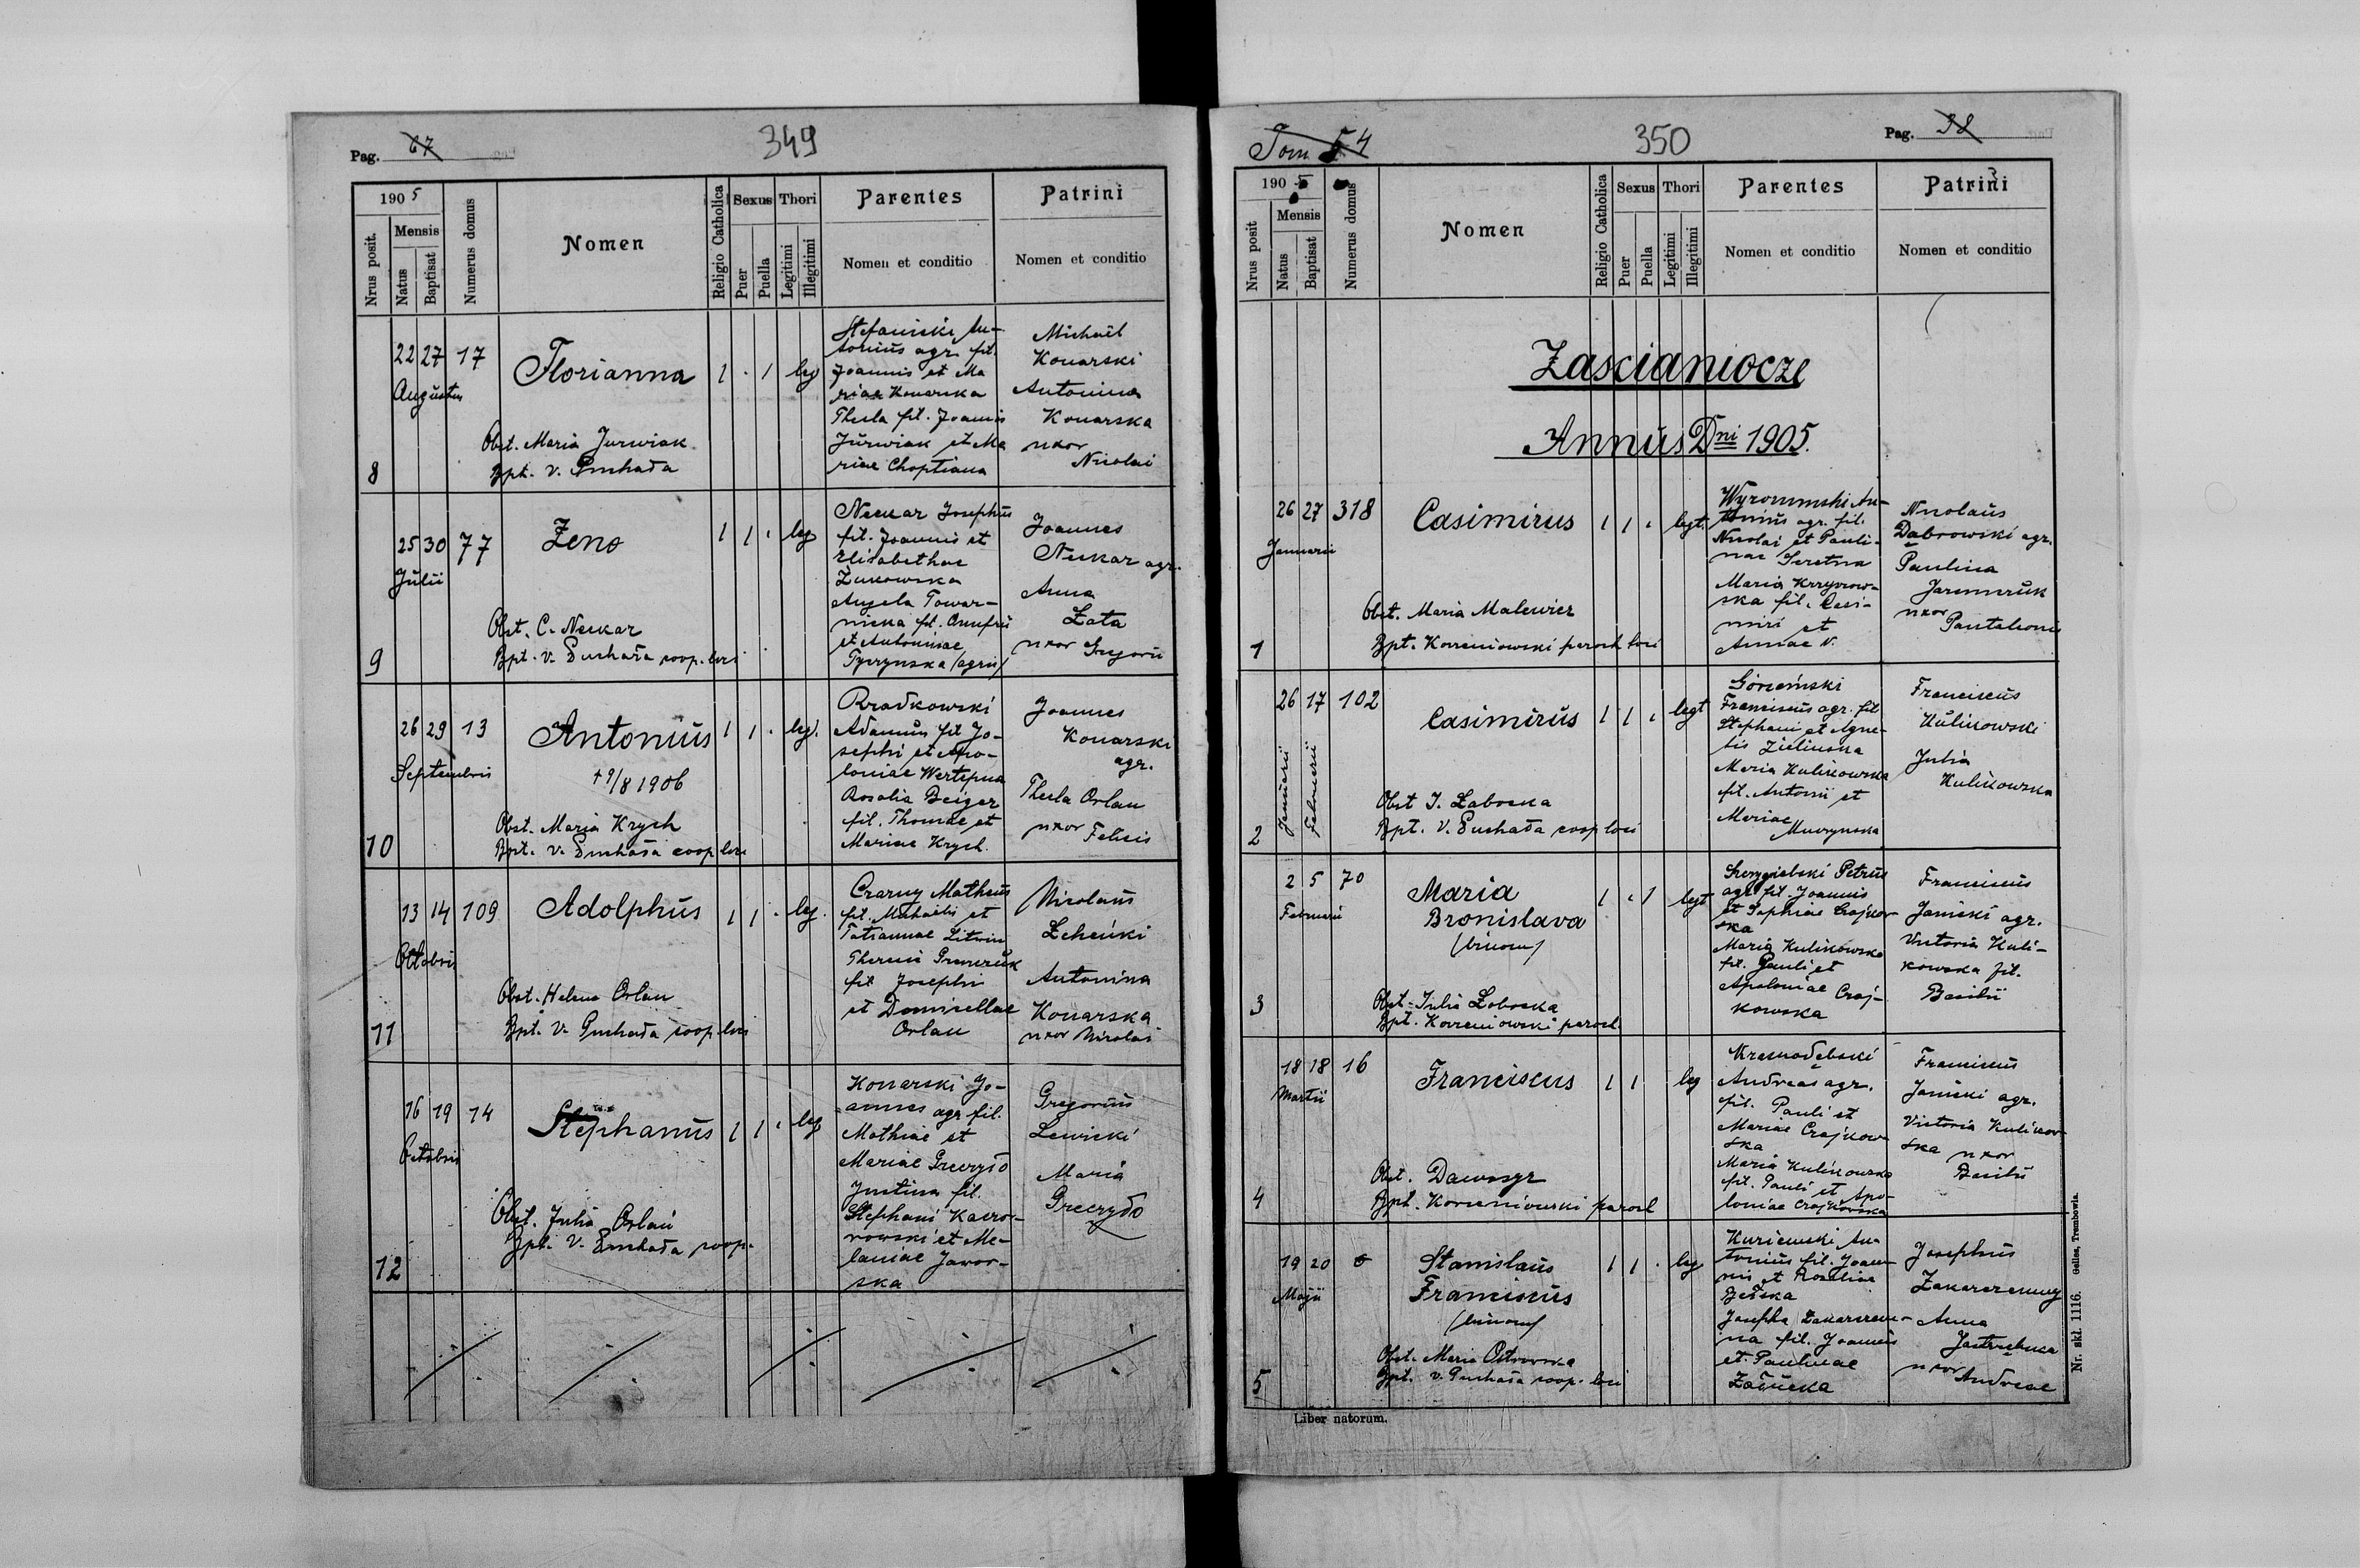 Pag. 67
349
1905
Nrus posit.
Mensis
Natus
Baptisat
Numerus domus
Nomen
Religio Catholica
Sexus
Puer
Puella
Thori
Legitimi
Illegitimi
Parentes
Nomen et conditio
Patrini
Nomen et conditio
8
22 27 17
Augustus
Florianna
1 . 1 leg
Obst. Maria Jurwiak
Bpt. V. Puchała
Stefanicki An-
tonius agr. fil.
Joannis et Ma
riae Konarska
Thecla fil. Joannis
Jurwiak et Ma
riae Choptiana
Michaël
Konarski
Antonina
Konarska
uxor
Nicolai
9
25 30 77
Julii
Zeno
1 1 . leg
Obst. C. Neckar
Bpt. V. Puchała coop. loci
Neckar Josephus
fil. Joannis et
Elisabethae
Żukowska
Angela Towar-
nicka fil. Onufrii
et Antoninae
Tyrzynska /agric/
Joannes
Neckar agr.
Anna
Łata
uxor Gregorii
10
26 29 13
Septembris
Antonius
+ 9/8 1906
1 1 . leg.
Obst. Maria Krych
Bpt. V. Puchała coop loci
Rzadkowski
Adamus fil Jo-
sephi et Apo-
loniae Wertepna
Rosalia Beiger
fil. Thomae et
Mariae Krych.
Joannes
Konarski
agr.
Thecla Orlan
uxor Felicis
11
13 14 109
Octobris
Adolphus
1 1 . leg.
Obst. Helena Orlan
Bpt. V. Puchała coop. loci
Czarny Matheus
fil. Michaelis et
Tatiannae Litwin
fil Josephi
et Domicellae
Orlan
Nicolaus
Antonina
Konarska
uxor Nicolai
12
16 19 14
Octobris
Stephanus
1 1 . leg
Obst. Julia Orlan
Bpt. V. Puchała coop.
Konarski Jo-
annes agr fil.
Mathiae et
Mariae Greczyło
Justina fil.
Stephani Kaczo-
rowski et Me-
laniae Jawor-
ska
Gregorius
Lewicki
Maria
Greczyło
Tom. 54
350
Pag. 38
1905
Nrus posit
Mensis
Natus
Baptisat
Numerus domus
Nomen
Religio Catholica
Sexus
Puer
Puella
Thori
Legitimi
Illegitimi
Parentes
Nomen et conditio
Patrini
Nomen et conditio
Zascianocze
Annus Dni 1905.
1
26 27 318
Januarii
Casimirus
1 1 . legt.
Obst. Maria Malewicz
Bpt. Korzeniowski paroch loci
An-
tonius agr. fil.
Nicolai et Pauli-
nae Seretna
Maria Krzyżow-
ska fil. Casi-
miri et
Annae N.
Nicolaus
Dąbrowski agr.
Paulina
Jaremczuk
uxor
Pantaleonis
2
26 17 102
Januarii
Februarii
Casimirus
1 1 . legt
Obst J. Łabocka
Bpt. V. Puchała coop loci
Górzeński
Franciscus agr. fil
Stephani et Agne-
tis Zielinska
Maria Kulikowska
fil. Antonii et
Mariae
Muczynska
Franciscus
Kulikowski
Julia
Kulikowska
3
2 5 70
Februarii
Maria
Bronislava
/binom/
1 . 1 legt
Obst. Julia Łobocka
Bpt. Korzeniowski paroch.
Szczygielski Petrus
agr. fil. Joannis
et Sophiae Czajkow-
ska
Maria Kulikowska
fil. Pauli et
Apoloniae Czaj-
kowska
Franciscus
Janicki agr.
Victoria Kuli-
kowska fil.
Basilii
4
18 18 16
Martii
Franciscus
1 1 leg
Obst. Dawosyr
Bpt. Korzeniowski paroch
Krasnodębski
Andreas agr.
fil. Pauli et
Mariae Czajkow-
ska
Maria Kulikowska
fil. Pauli et Apo-
loniae Czajkowska
Franciscus
Janicki agr.
Victoria Kulikow-
ska uxor
Basilii
5
19 20 6
Maji
Stanislaus
Franciscus
/binom/
1 1 . leg
Obst. Maria Ostrowska
Bpt. V. Puchała coop. loci
Kuriewski An-
tonius fil. Joan-
nis et Rosaliae
Bełska
Josepha Zakarczem-
na fil. Joannis
et Paulinae
Załucka
Josephus
Zakarczemny
Anna
Jastrzębska
uxor
Andreae
Liber natorum.
Nr. skł. 1116. Gelles, Trembowla.